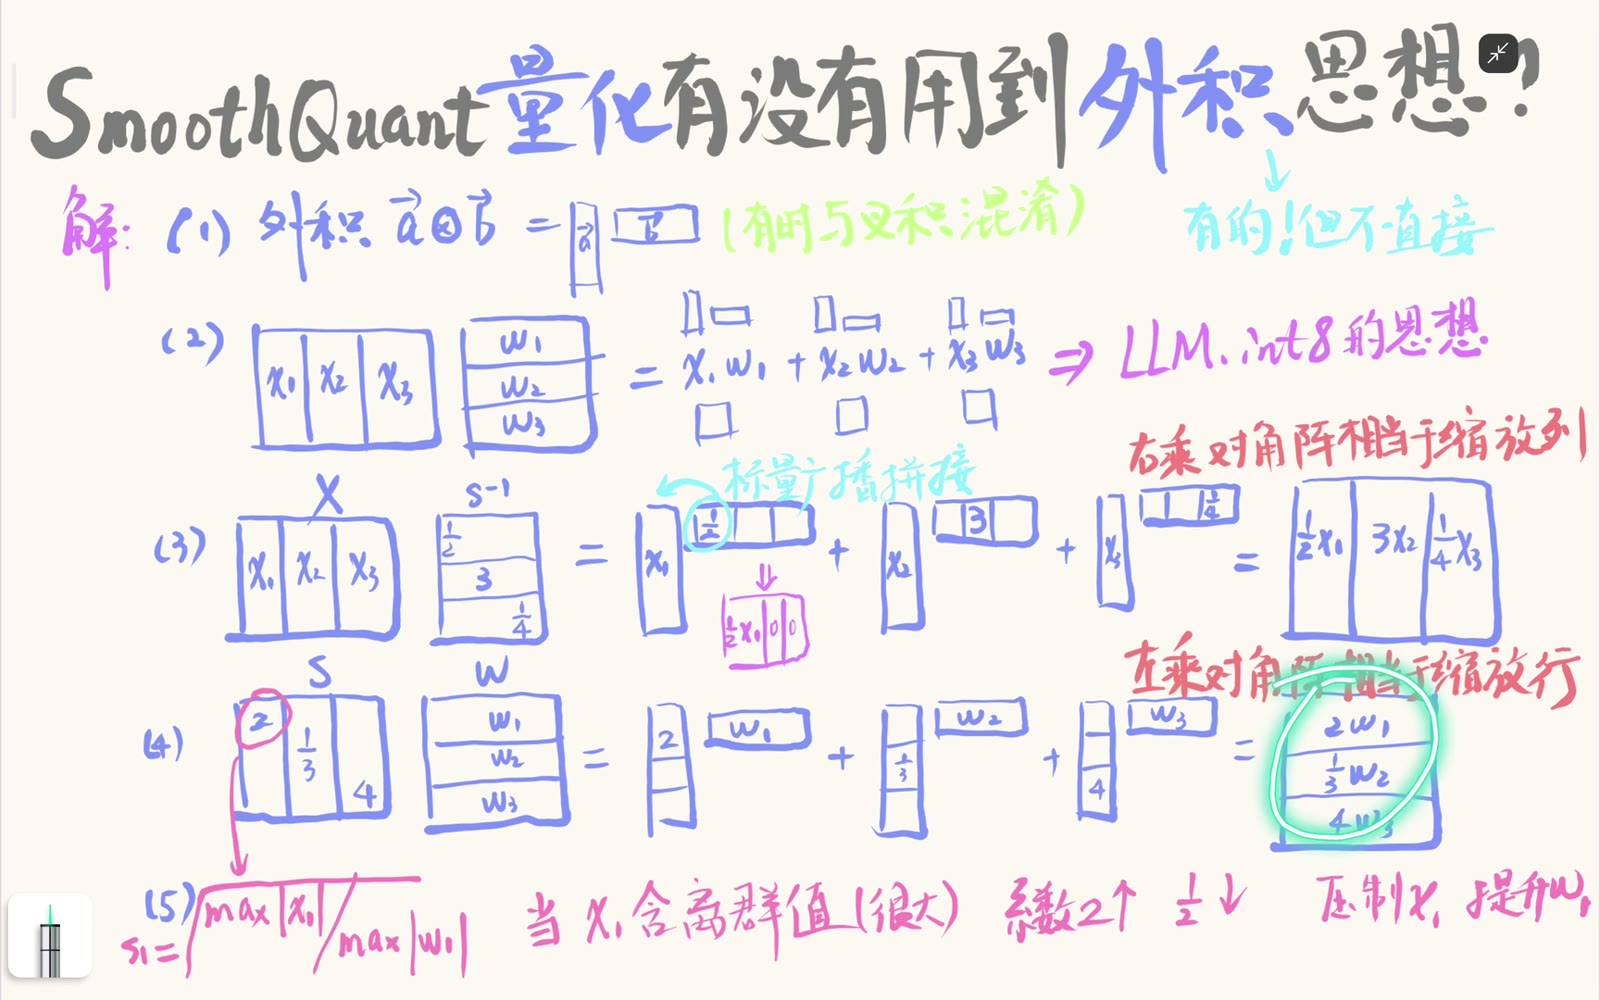 SmoothQuant量化有没有用到外积思想?
解: (1) 外积 a⊗b = a b (有时与叉积混淆)
有的!但不直接
(2) x₁ x₂ x₃ w₁ w₂ w₃ = x₁w₁ + x₂w₂ + x₃w₃ ⇒ LLM.int8的思想
右乘对角阵相当于缩放列
标量广播拼接
X S⁻¹
(3) x₁ x₂ x₃ 1/2 3 1/4 = x₁ 1/2 + x₂ 3 + x₃ 1/4 = 1/2x₁ 3x₂ 1/4x₃
⇓
1/2x₁ 0 0
左乘对角阵相当于缩放行
S W
(4) 2 1/3 4 w₁ w₂ w₃ = 2 w₁ + 1/3 w₂ + 4 w₃ = 2w₁ 1/3w₂ 4w₃
(5) s₁=√max|x₁|/max|w₁| 当x₁含离群值(很大) 系数2↑ 1/2↓ 压制x₁ 提升w₁